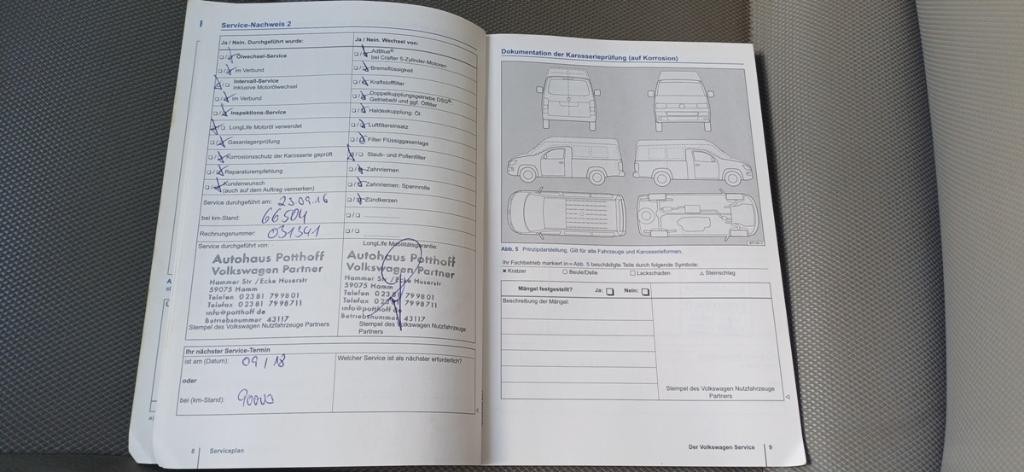 Service-Nachweis 2
Ja / Nein. Durchgeführt wurde:
Ölwechsel-Service
im Verbund
Intervall-Service
inklusive Motorölwechsel
im Verbund
Inspektions-Service
LongLife Motoröl verwendet
Gasanlagenprüfung
Korrosionsschutz der Karosserie geprüft
Reparaturempfehlung
Kundenwunsch
(auch auf dem Auftrag vermerken)
Service durchgeführt am: 23.09.16
bei km-Stand: 66504
Rechnungsnummer: 031341
Ja / Nein. Wechsel von:
AdBlue®
bei Crafter 5-Zylinder-Motoren
Bremsflüssigkeit
Kraftstofffilter
Doppelkupplungsgetriebe DSG®:
Getriebeöl und ggf. Ölfilter
Haldexkupplung: Öl
Luftfiltereinsatz
Filter Flüssiggasanlage
Staub- und Pollenfilter
Zahnriemen
Zahnriemen: Spannrolle
Zündkerzen
Service durchgeführt von:
Autohaus Potthoff
Volkswagen Partner
Hammer Str /Ecke Huserstr
59075 Hamm
Telefon 02381 799801
Telefax 02381 7998711
info@potthoff.de
Betriebsnummer 43117
Stempel des Volkswagen Nutzfahrzeuge Partners
LongLife Mobilitätsgarantie:
Autohaus Potthoff
Volkswagen Partner
Hammer Str /Ecke Huserstr
59075 Hamm
Telefon 02381 799801
Telefax 02381 7998711
info@potthoff.de
Betriebsnummer 43117
Stempel des Volkswagen Nutzfahrzeuge
Partners
Ihr nächster Service-Termin
ist am (Datum): 09/18
oder
bei (km-Stand): 90000
Welcher Service ist als nächster erforderlich?
8 Serviceplan
Dokumentation der Karosserieprüfung (auf Korrosion)
Abb. 5 Prinzipdarstellung. Gilt für alle Fahrzeuge und Karosserieformen.
Ihr Fachbetrieb markiert in Abb. 5 beschädigte Teile durch folgende Symbole:
Kratzer Beule/Delle Lackschaden Steinschlag
Mängel festgestellt? Ja: Nein:
Beschreibung der Mängel:
Stempel des Volkswagen Nutzfahrzeuge
Partners
Der Volkswagen Service 9